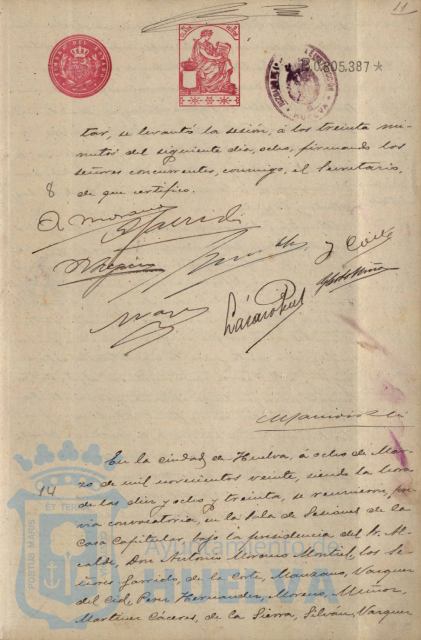 11
B.0.805.387 *
HUELVA
tar, se levantó la sesión, á los treinta mi-
nutos del siguiente dia, ocho, firmando los
señores concurrentes, conmigo, el Secretario.
8
de que certifico.
A Moreno
Garrido
y Corte
Lázaro Ruiz
En la ciudad de Huelva, á ocho de Mar-
zo de mil novecientos veinte, siendo la hora
14
de las diez y ocho y treinta, se reunieron, pré-
via convocatoria, en la Sala de Sesiones de la
Casa Capitular, bajo la presidencia del Sr. Al-
calde, Don Antonio Moreno Montiel, los Se-
ñores Garrido, de la Corte, Manzano, Vazquez
del Cid, Perez Hernandez, Moreno, Muñoz,
Martinez Cáceres, de la Sierra, Silván, Vazquez
PORTUS MARIS
ET TERRAE
Ayuntamiento de
HUELVA